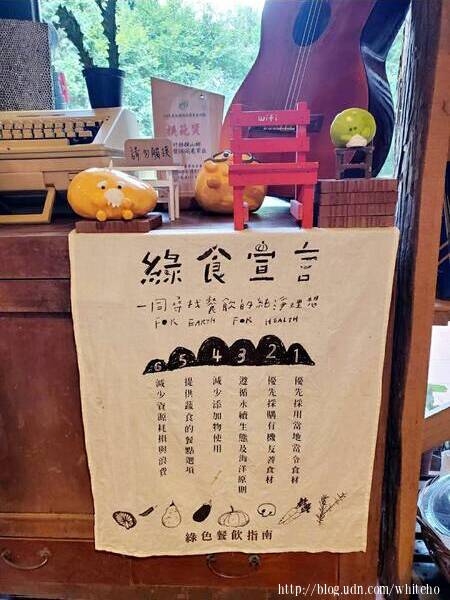 請勿觸摸
wifi
綠食宣言
一同尋找餐飲的純淨理想
FOR EARTH FOR HEALTH
6 5 4 3 2 1
優先採用當地當令食材
優先採購有機友善食材
遵循永續生態及海洋原則
減少添加物使用
提供蔬食的餐點選項
減少資源耗損與浪費
綠色餐飲指南
http://blog.udn.com/whiteho